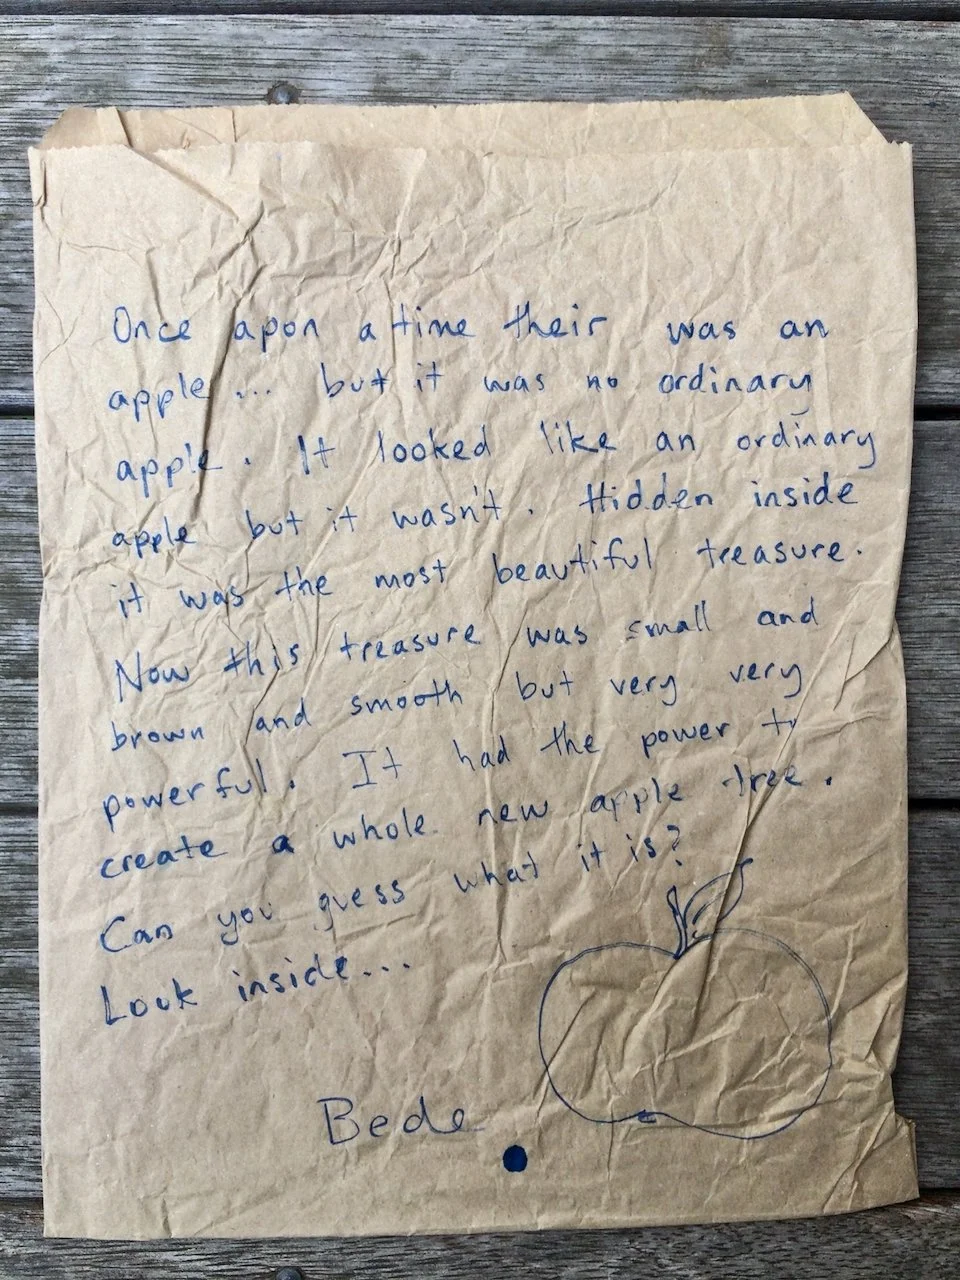 Once apon a time their was an
apple... but it was no ordinary
apple. It looked like an ordinary
apple but it wasn't. Hidden inside
it was the most beautiful treasure.
Now this treasure was small and
brown and smooth but very very
powerful. It had the power to
create a whole new apple tree.
Can you guess what it is?
Look inside...
Bede